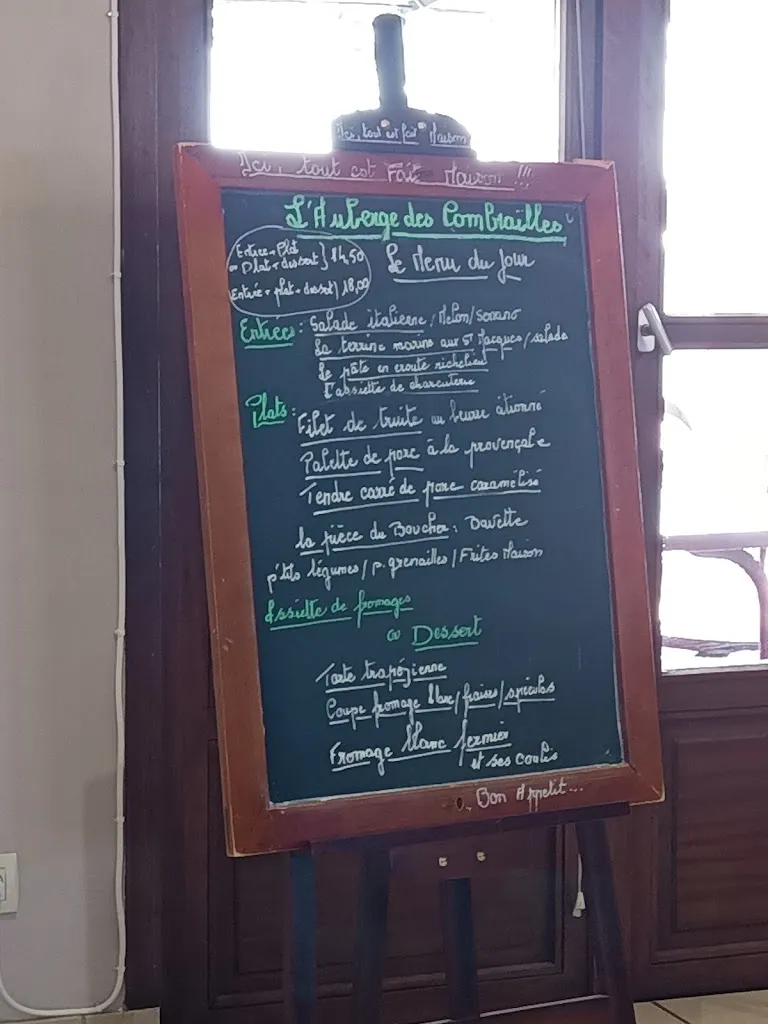 Ici, tout est fait Maison
Ici, tout est Fait Maison !!!
L'Auberge des Combrailles
Entrée + Plat
ou Plat + dessert } 14,50
Entrée + plat + dessert } 18,00
Le Menu du jour
Entrées : Salade italienne / Melon/Serrano
La terrine marine aux St Jacques / salade
Le pâté en croute richelieu
L'assiette de charcuterie
Plats : Filet de truite au beurre citronné
Palette de porc à la provençale
Tendre carré de porc caramélisé
la pièce du Boucher : Bavette
p'tits légumes / p. grenailles / Frites Maison
Assiette de fromages
ou Dessert
Tarte trapézienne
Coupe fromage blanc / fraises / spéculos
Fromage blanc fermier
et ses coulis
Bon Appetit...